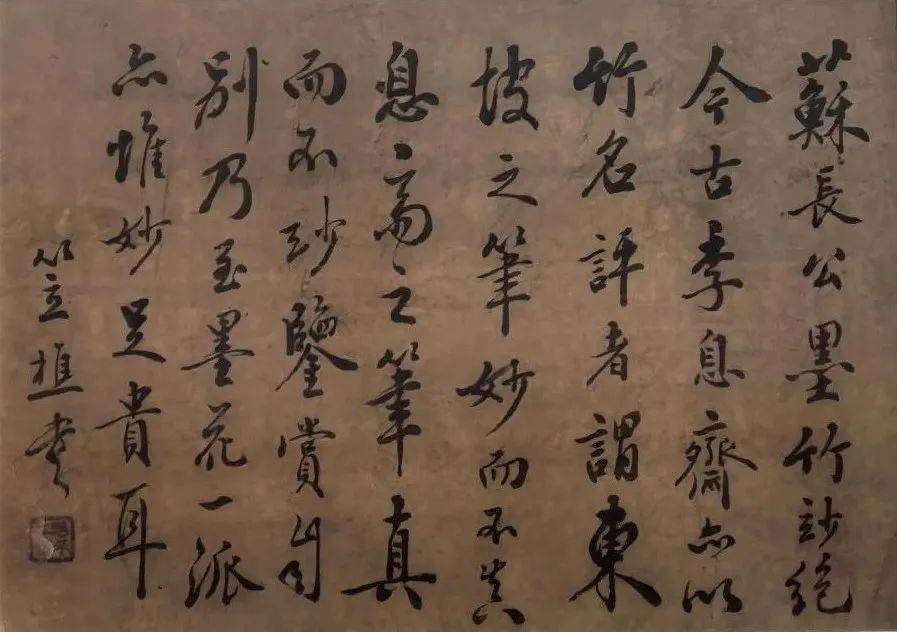 蘇長公墨竹玅絕
今古李息齋亦以
竹名評者謂東
坡之筆妙而不真
息斎之筆真
而不玅鑒賞自
別乃至墨花一派
亦惟妙足貴耳
笠樵書